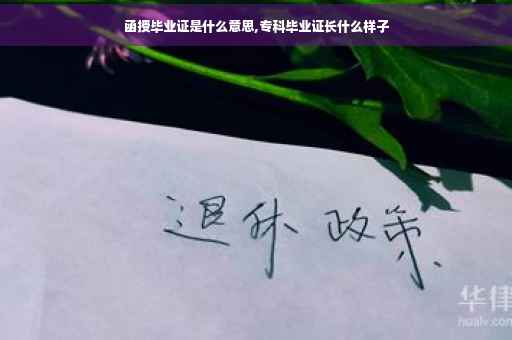 函授毕业证是什么意思,专科毕业证长什么样子
退休 政策
华律
hualv.com